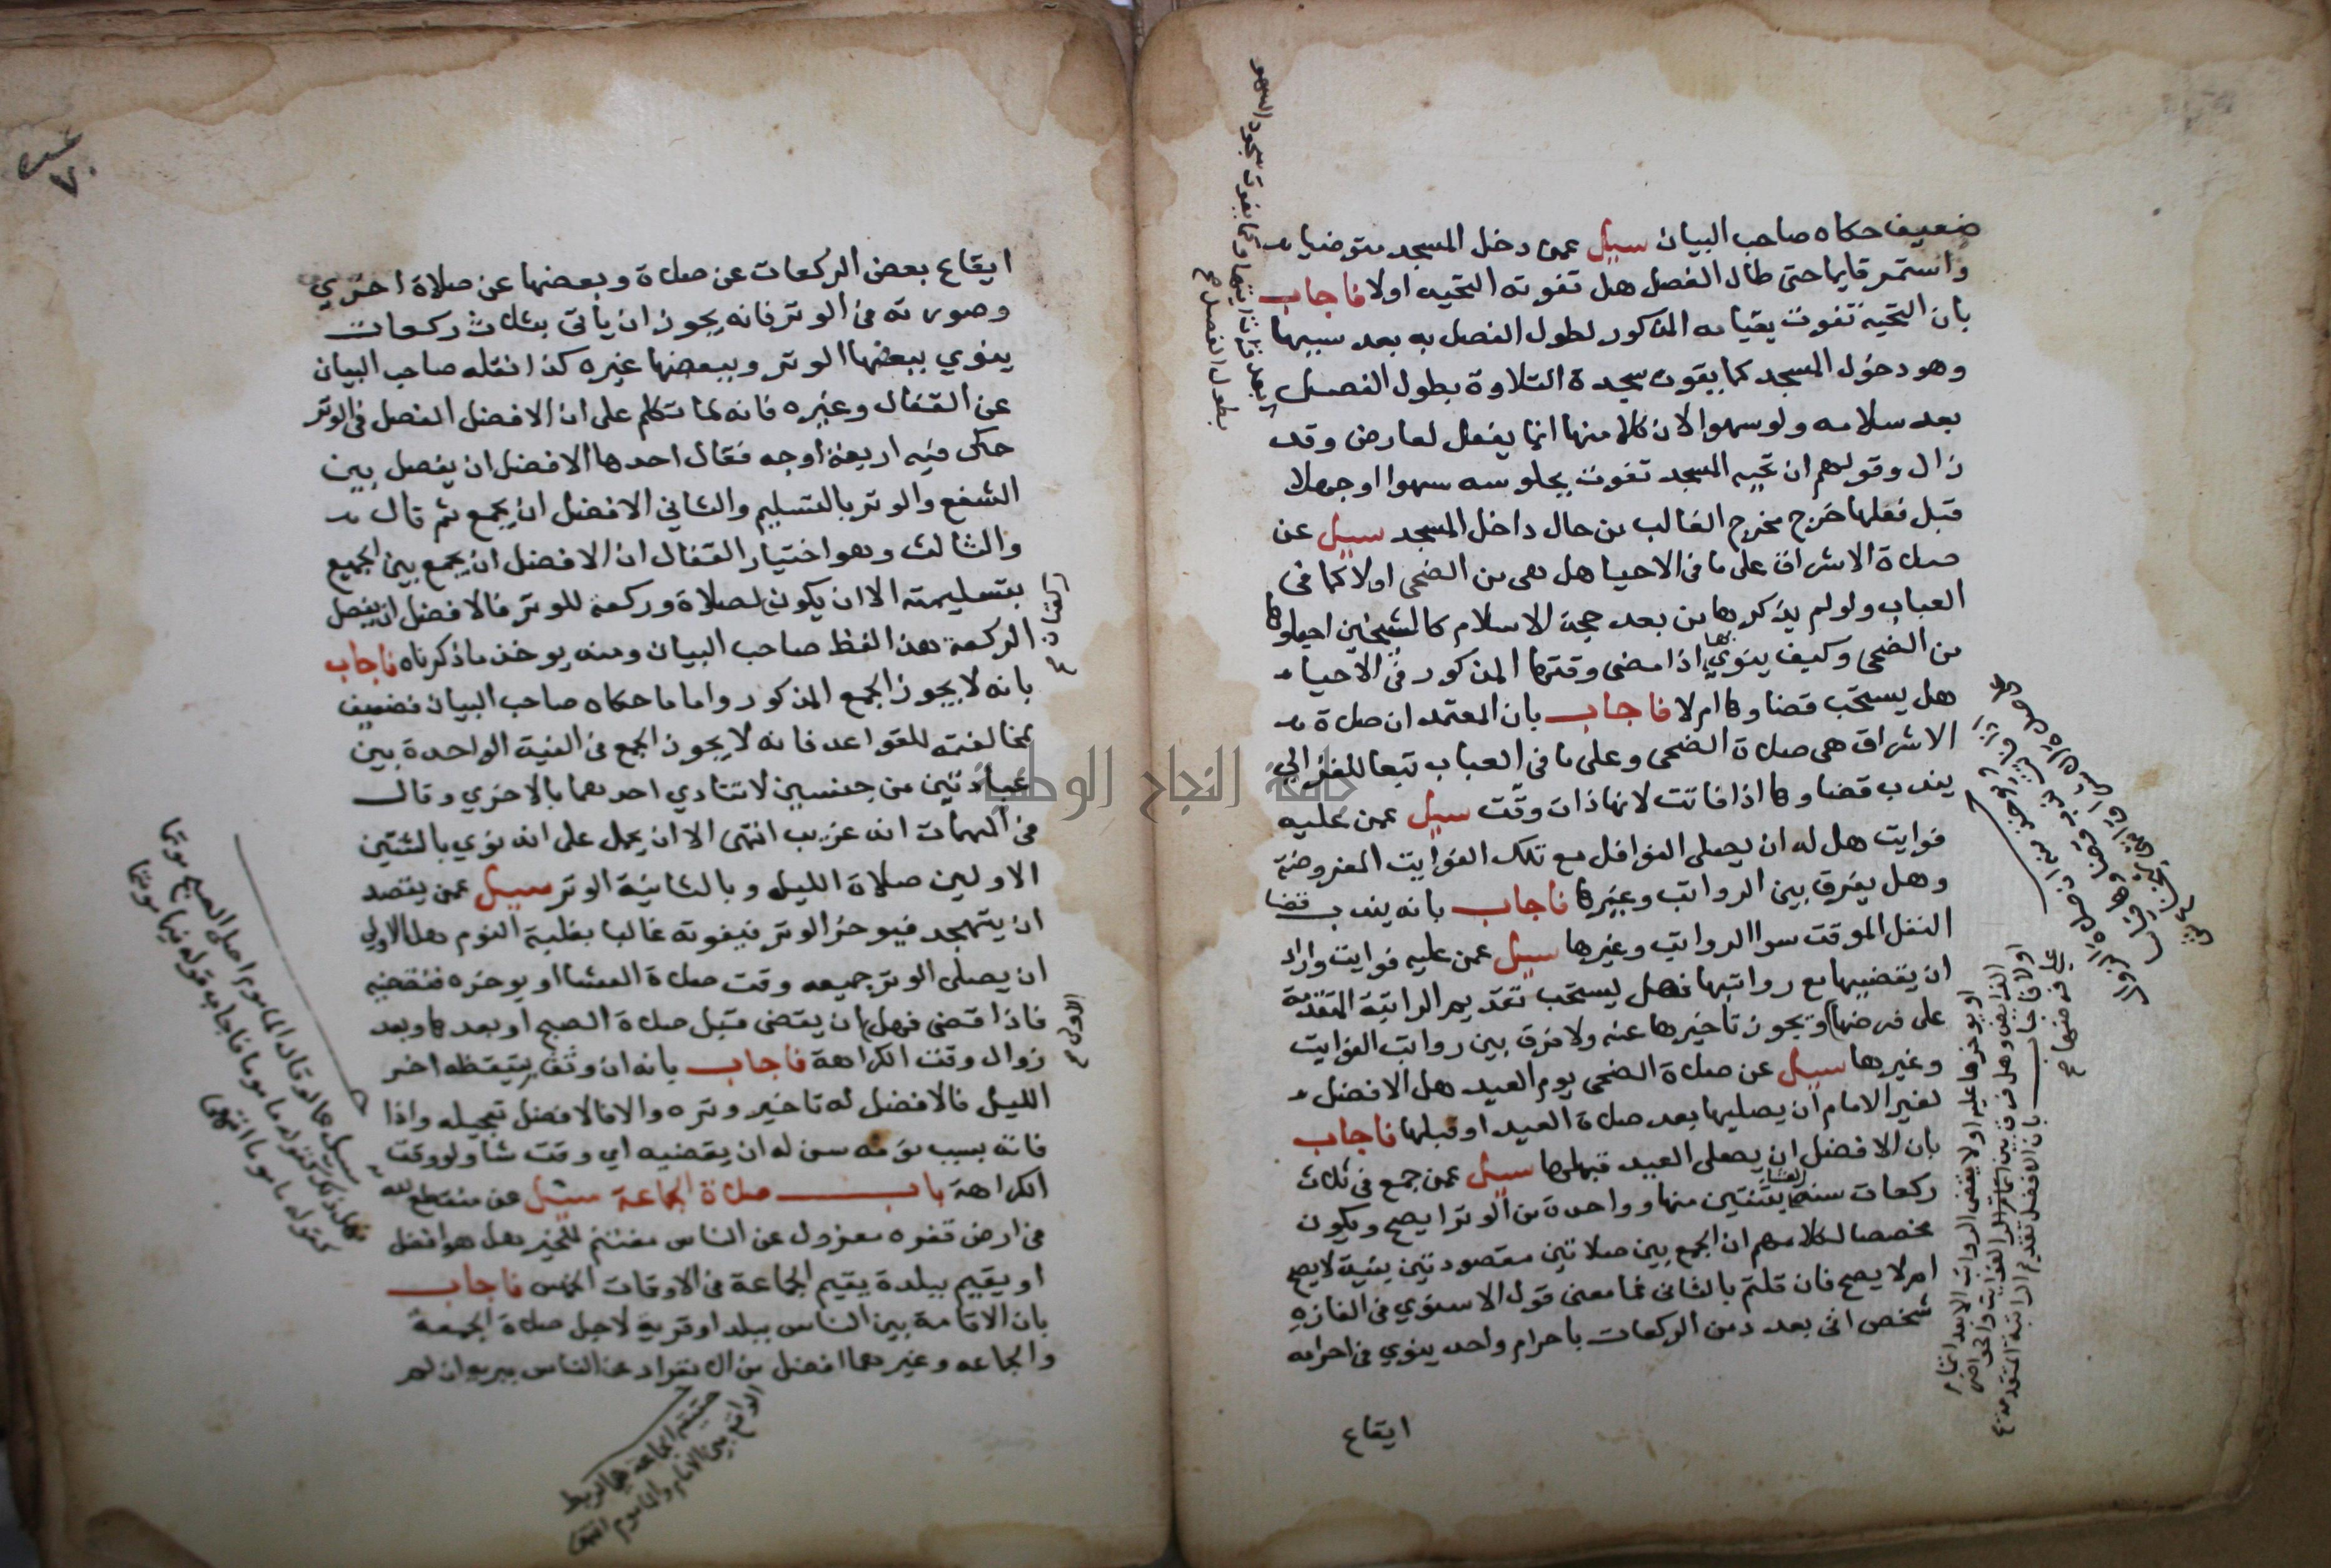 ضعيف حكاه صاحب البيان سيل عمن دخل المسجد متوضيا
واستمر قايما حتى طال الفصل هل تفوته التحيه اولا فاجاب
بان التحية تفوت بقيامه المذكور لطول الفصل به بعد سببها
وهو دخول المسجد كما يفوت سجدة التلاوة بطول الفصل
بعد سلامه ولو سهوا لان كلا منها انما يفعل لعارض وقد
زال وقولهم ان تحيه المسجد تفوت بجلوسه سهوا او جهلا
قبل فعلها خرج مخرج الغالب من حال داخل المسجد سيل عن
صلاة الاشراق على ما في الاحيا هل هى من الضحى اولا كما في
العباب ولو لم يذكرها من بعد حجة الاسلام كالشيخين
من الضحى وكيف ينوي بها اذا مضى وقتها المذكور في الاحياء
هل يستحب قضاوها ام لا فاجاب بان المعتمد ان صلاة
الاشراق هى صلاة الضحى وعلى ما في العباب تبعا للغزالي
يندب قضاوها اذا فاتت لانها ذات وقت سيل عمن عليه
فوايت هل له ان يصلى النوافل مع تلك الفوايت المفروضة
وهل يفرق بين الرواتب وغيرها فاجاب بانه يندب قضا
النفل الموقت سوا الرواتب وغيرها سيل عمن عليه فوايت واراد
ان يقضيها مع رواتبها فهل يستحب تقديم الراتبة المتقدمة
على فرضها ويجوز تاخيرها عنه ولا فرق بين رواتب الفوايت
وغيرها سيل عن صلاة الضحى يوم العيد هل الافضل
لغير الامام ان يصليها بعد صلاة العيد او قبلها فاجاب
بان الافضل ان يصلى العيد قبلها سيل عمن جمع في ثلاث
ركعات سنة العشا ثنتين منها وواحدة من الوتر ايصح ويكون
مخصصا لكلامهم ان الجمع بين صلاتين مقصودتين بنية لا يصح
ام لا يصح فان قلتم بالثاني فما معنى قول الاسنوي في الغازه
شخص اتى بعدد من الركعات باحرام واحد ينوي في احرامه
ايقاع
بعد فوات اثنتها وكما يفوت سجود السهو
بطول الفصل صح
او يوخرها عليه اولا يقضى الرواتب الا بعد اتمام
الفرايض وهل فرق بين اتمام الفوايت والحواضر
اولا فاجاب بان الافضل تقديم الراتبة المتقدمة
على فرضها صح
ايقاع بعض الركعات عن صلاة وبعضها عن صلاة اخري
وصورته في الوتر فانه يجوز ان ياتى بثلاث ركعات
ينوي ببعضها الوتر وببعضها غيره كذا نقله صاحب البيان
عن القفال وغيره فانه لما تكلم على ان الافضل الفصل في الوتر
حكى فيه اربعة اوجه فقال احدها الافضل ان يفصل بين
الشفع والوتر بالتسليم والثاني الافضل ان يجمع ثم قال
والثالث وهو اختيار القفال ان الافضل ان يجمع بين الجميع
بتسليمته الا ان يكون لصلاة وركعة للوتر فالافضل ان يفصل
الركعة هذا لفظ صاحب البيان ومنه يوخذ ما ذكرناه فاجاب
بانه لا يجوز الجمع المذكور واما ما حكاه صاحب البيان فضعيف
لمخالفته للقواعد فانه لا يجوز الجمع في النية الواحدة بين
عبادتين من جنسين لا تتادي احدهما بالاخري وقال
في المهمات انه غريب انتهى الا ان يحمل على انه نوي بالثنتين
الاولين صلاة الليل وبالثانية الوتر سيل عمن يقصد
ان يتهجد فيوخر الوتر فيفوته غالبا بغلبة النوم هل الاولى
ان يصلى الوتر جميعه وقت صلاة العشا او يوخره فنقضيه
فاذا قضى فهل ان يقضى قبل صلاة الصبح او بعدها وبعد
زوال وقت الكراهة فاجاب بانه ان وثق بتيقظه اخر
الليل فالافضل له تاخير وتره والا فالافضل تعجيله واذا
فاته بسبب نومه سن له ان يقضيه اي وقت شا ولو وقت
الكراهة باب صلاة الجماعة سيل عن منقطع لله
في ارض قفره معزول عن الناس مغتنم للخير هل هو افضل
او يقيم ببلدة يقيم الجماعة في الاوقات الخمس فاجاب
بان الاقامة بين الناس ببلد او قرية لاجل صلاة الجمعة
والجماعه وغيرهما افضل من الانفراد عن الناس ببريه وان لم
الاولى صح
سيل عما لو قال الماموم اصلى الصبح موتما
فهل ذلك كقوله ماموما فاجاب قوله فيها موتما
كقوله ماموما انتهى
حقيقة الجماعة هى الربط
الواقع بين الامام والماموم انتهى
جامعة النجاح الوطنية